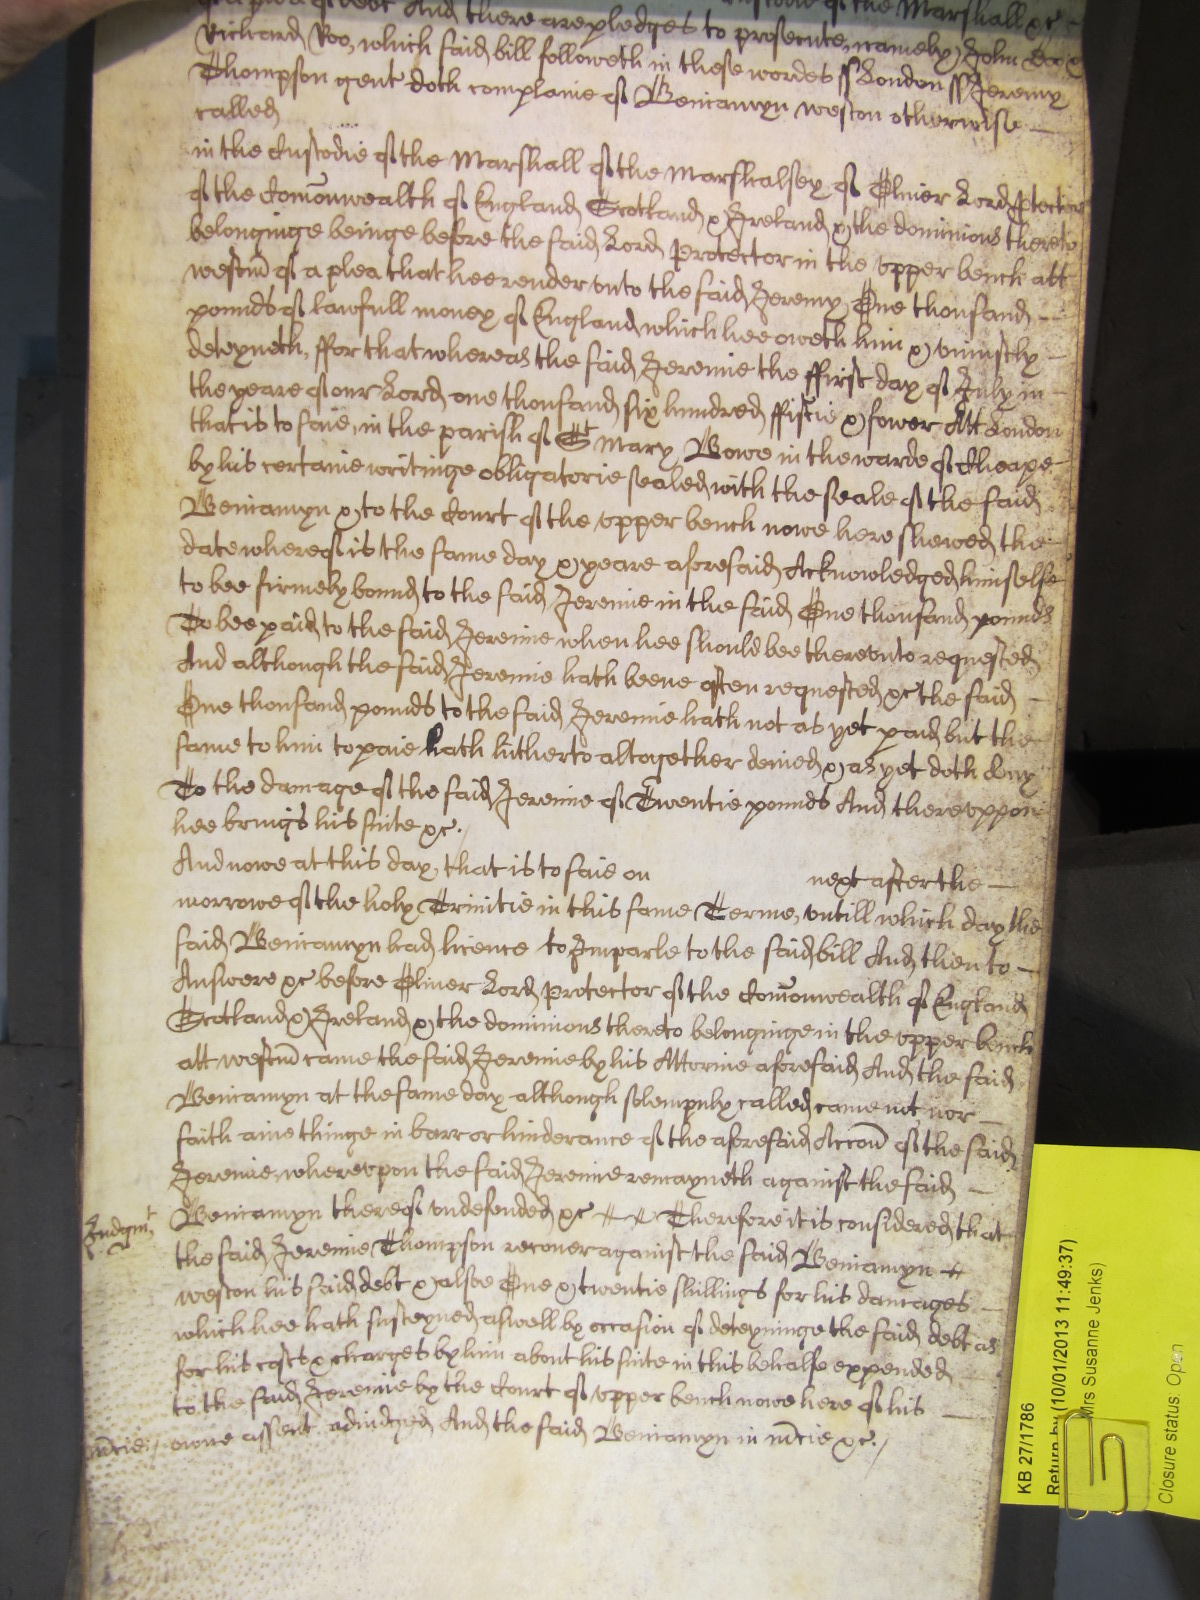 of a plea of debt And there are pledges to prosecute, namely, John Doe &
Richard Roo, which said bill followeth in these wordes ss London ss Jeremy
Thompson gent doth complaine of Beniamyn weston otherwise —
called
in the Custodie of the Marshall of the Marshalsey of Oliver Lord Protector
of the Com̄onwealth of England Scotland & Ireland & the dominions thereto
belonginge beinge before the said Lord Protector in the vpper bench att
westm̄ of a plea that hee render vnto the said Jeremy One thousand —
pounds of lawfull money of England which hee oweth him & vniustly —
deteyneth, ffor that whereas the said Jeremie the ffirst day of July in —
the yeare of our Lord one thousand six hundred ffiftie & fower Att London
that is to saie, in the parish of St Mary Bowe in the warde of Cheape
by his certaine writinge obligatorie sealed with the seale of the said
Beniamyn & to the Court of the vpper bench nowe here shewed the
date whereof is the same day & yeare aforesaid Acknowledged himselfe
to bee firmely bound to the said Jeremie in the said One thousand pounds
To bee paid to the said Jeremie when hee should bee therevnto requested
And although the said Jeremie hath beene often requested &c the said —
One thousand pounds to the said Jeremie hath not as yet paid but the
same to him to paie hath hitherto altogether denied & as yet doth deny
To the damage of the said Jeremie of Twentie pounds And therevppon
hee brings his suite &c.
And nowe at this day, that is to saie on next after the —
morrowe of the holy Trinitie in this same Terme, vntill which day the
said Beniamyn had licence to Imparle to the said bill And then to —
Answere &c before Oliver Lord Protector of the Com̄onwealth of England
Scotland & Ireland & the dominions thereto belonginge in the vpper bench
att westm̄ came the said Jeremie by his Attornie aforesaid And the said
Beniamyn at the same day although solempnly called came not nor —
saith anie thinge in barr or hinderance of the aforesaid Accōn of the said
Jeremie, wherevpon the said Jeremie remayneth against the said —
Judgmt
Beniamyn thereof vndefended &c Therefore it is considered that
the said Jeremie Thompson recover against the said Beniamyn
weston his said debt & alsoe One & twentie shillings for his damages —
which hee hath susteyned aswell by occasion of deteyninge the said debt as
for his costs & charges by him about his suite in this behalfe expended —
to the said Jeremie by the Court of vpper bench nowe here of his —
m̄cie
owne assent adiudged And the said Beniamyn in m̄cie &c.
KB 27/1786
Return by (10/01/2013 11:49:37)
Mrs Susanne Jenks)
Closure status: Open